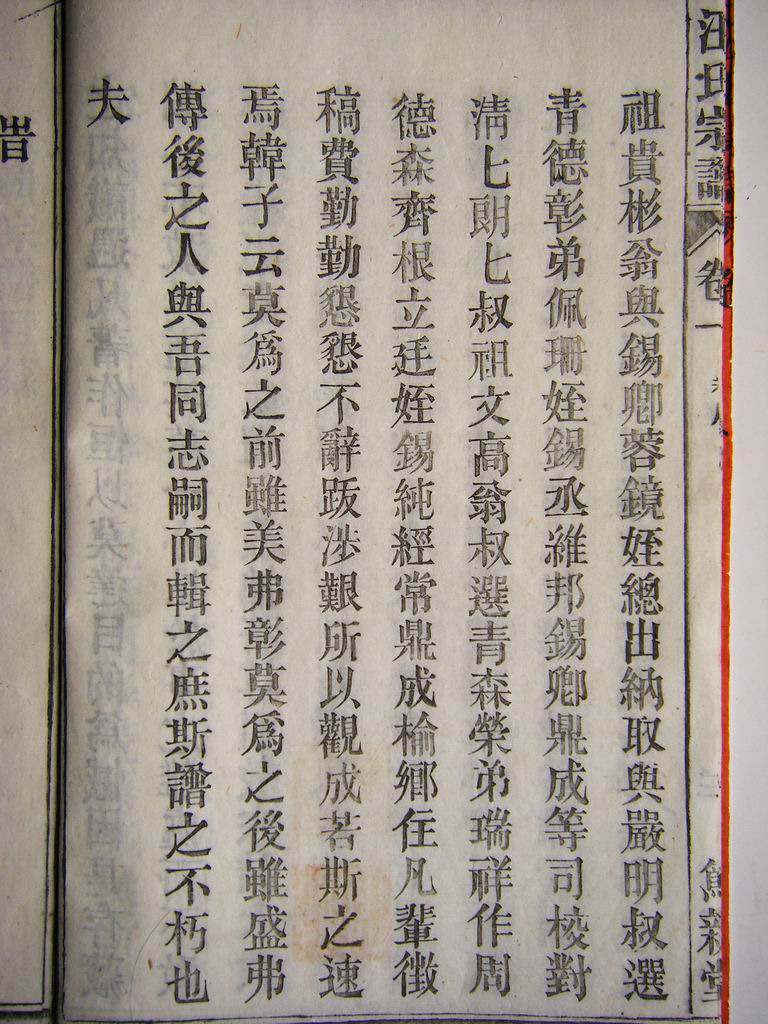 汪氏宗譜 卷一
祖貴彬翁與錫卿蓉鏡姪總出納取與嚴明叔選
青德彰弟佩珊姪錫丞維邦錫卿鼎成等司校對
清七朗七叔祖文高翁叔選青森榮弟瑞祥作周
德森齊根立廷姪錫純經常鼎成楡鄉住凡輩徵
稿費勤勤懇懇不辭跋涉艱所以觀成若斯之速
焉韓子云莫爲之前雖美弗彰莫爲之後雖盛弗
傳後之人與吾同志嗣而輯之庶斯譜之不朽也
夫